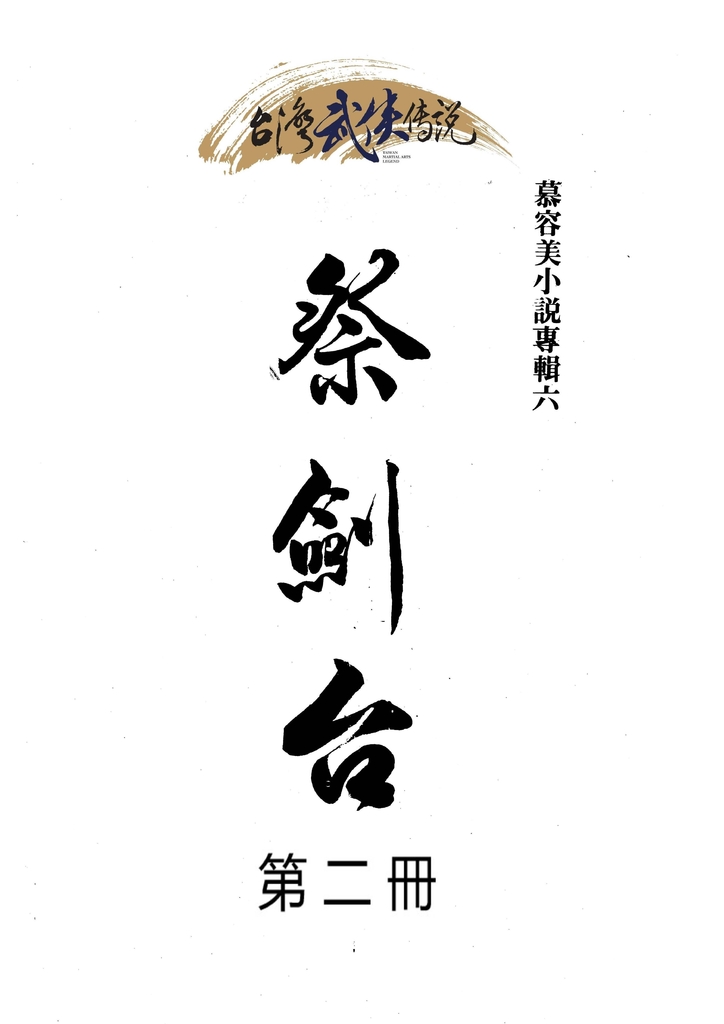 台灣武俠傳説
TAIWAN
MARTIAL ARTS
LEGEND
慕容美小説專輯六
祭劍台
第二冊